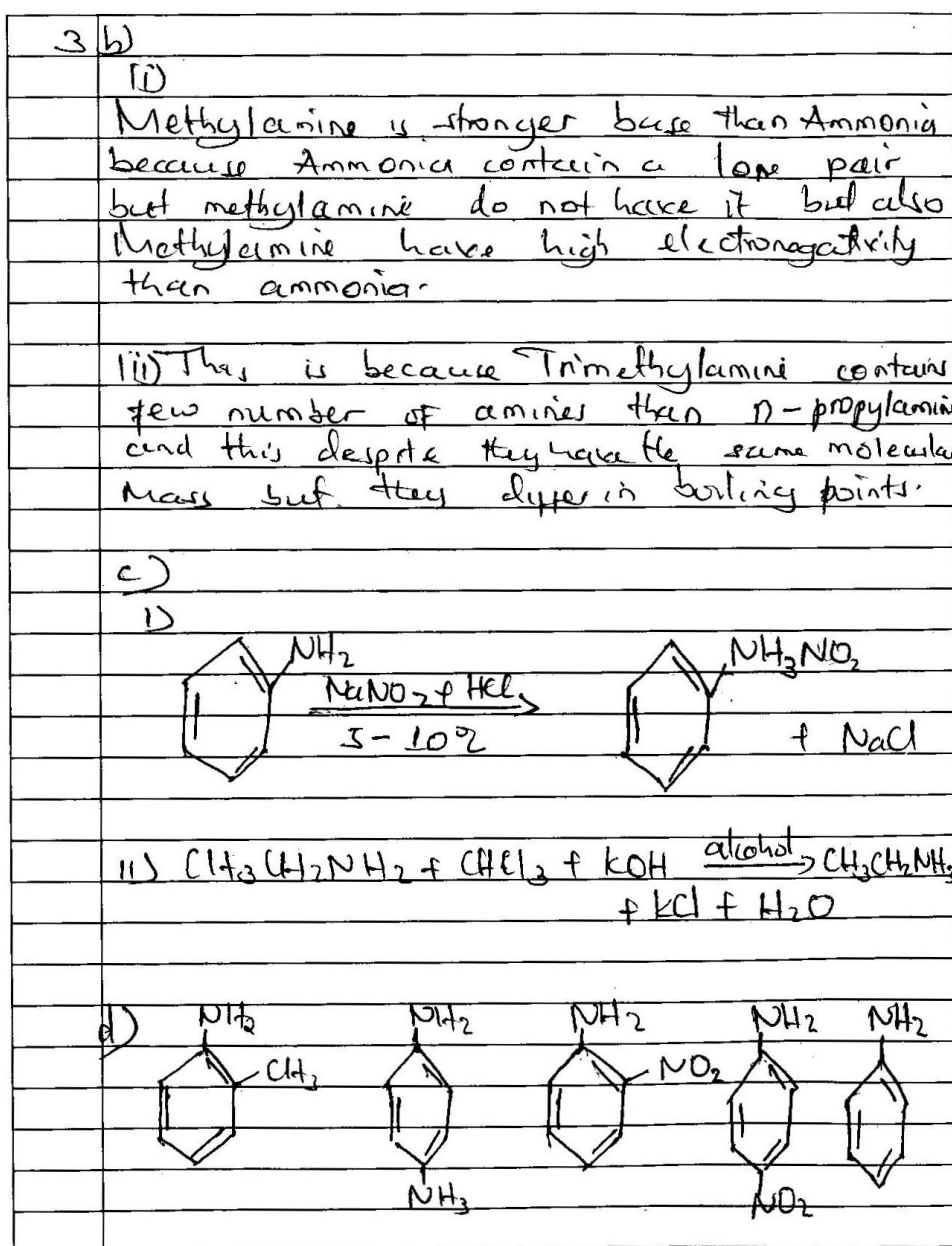 3 b)
(i)
Methylamine is stronger base than Ammonia
because Ammonia contain a lone pair
but methylamine do not have it but also
Methylamine have high electronegativity
than ammonia.
(ii) This is because Trimethylamine contains
few number of amines than n-propylamine
and this despite they have the same molecular
mass but they differ in boiling points.
c)
i)
NH₂ NaNO₂ + HCl NH₃NO₂
5-10°C + NaCl
ii) CH₃CH₂NH₂ + CHCl₃ + KOH alcohol → CH₃CH₂NH₃
+ KCl + H₂O
d) NH₂ NH₂ NH₂ NH₂ NH₂
CH₃ NO₂
NH₃ NO₂